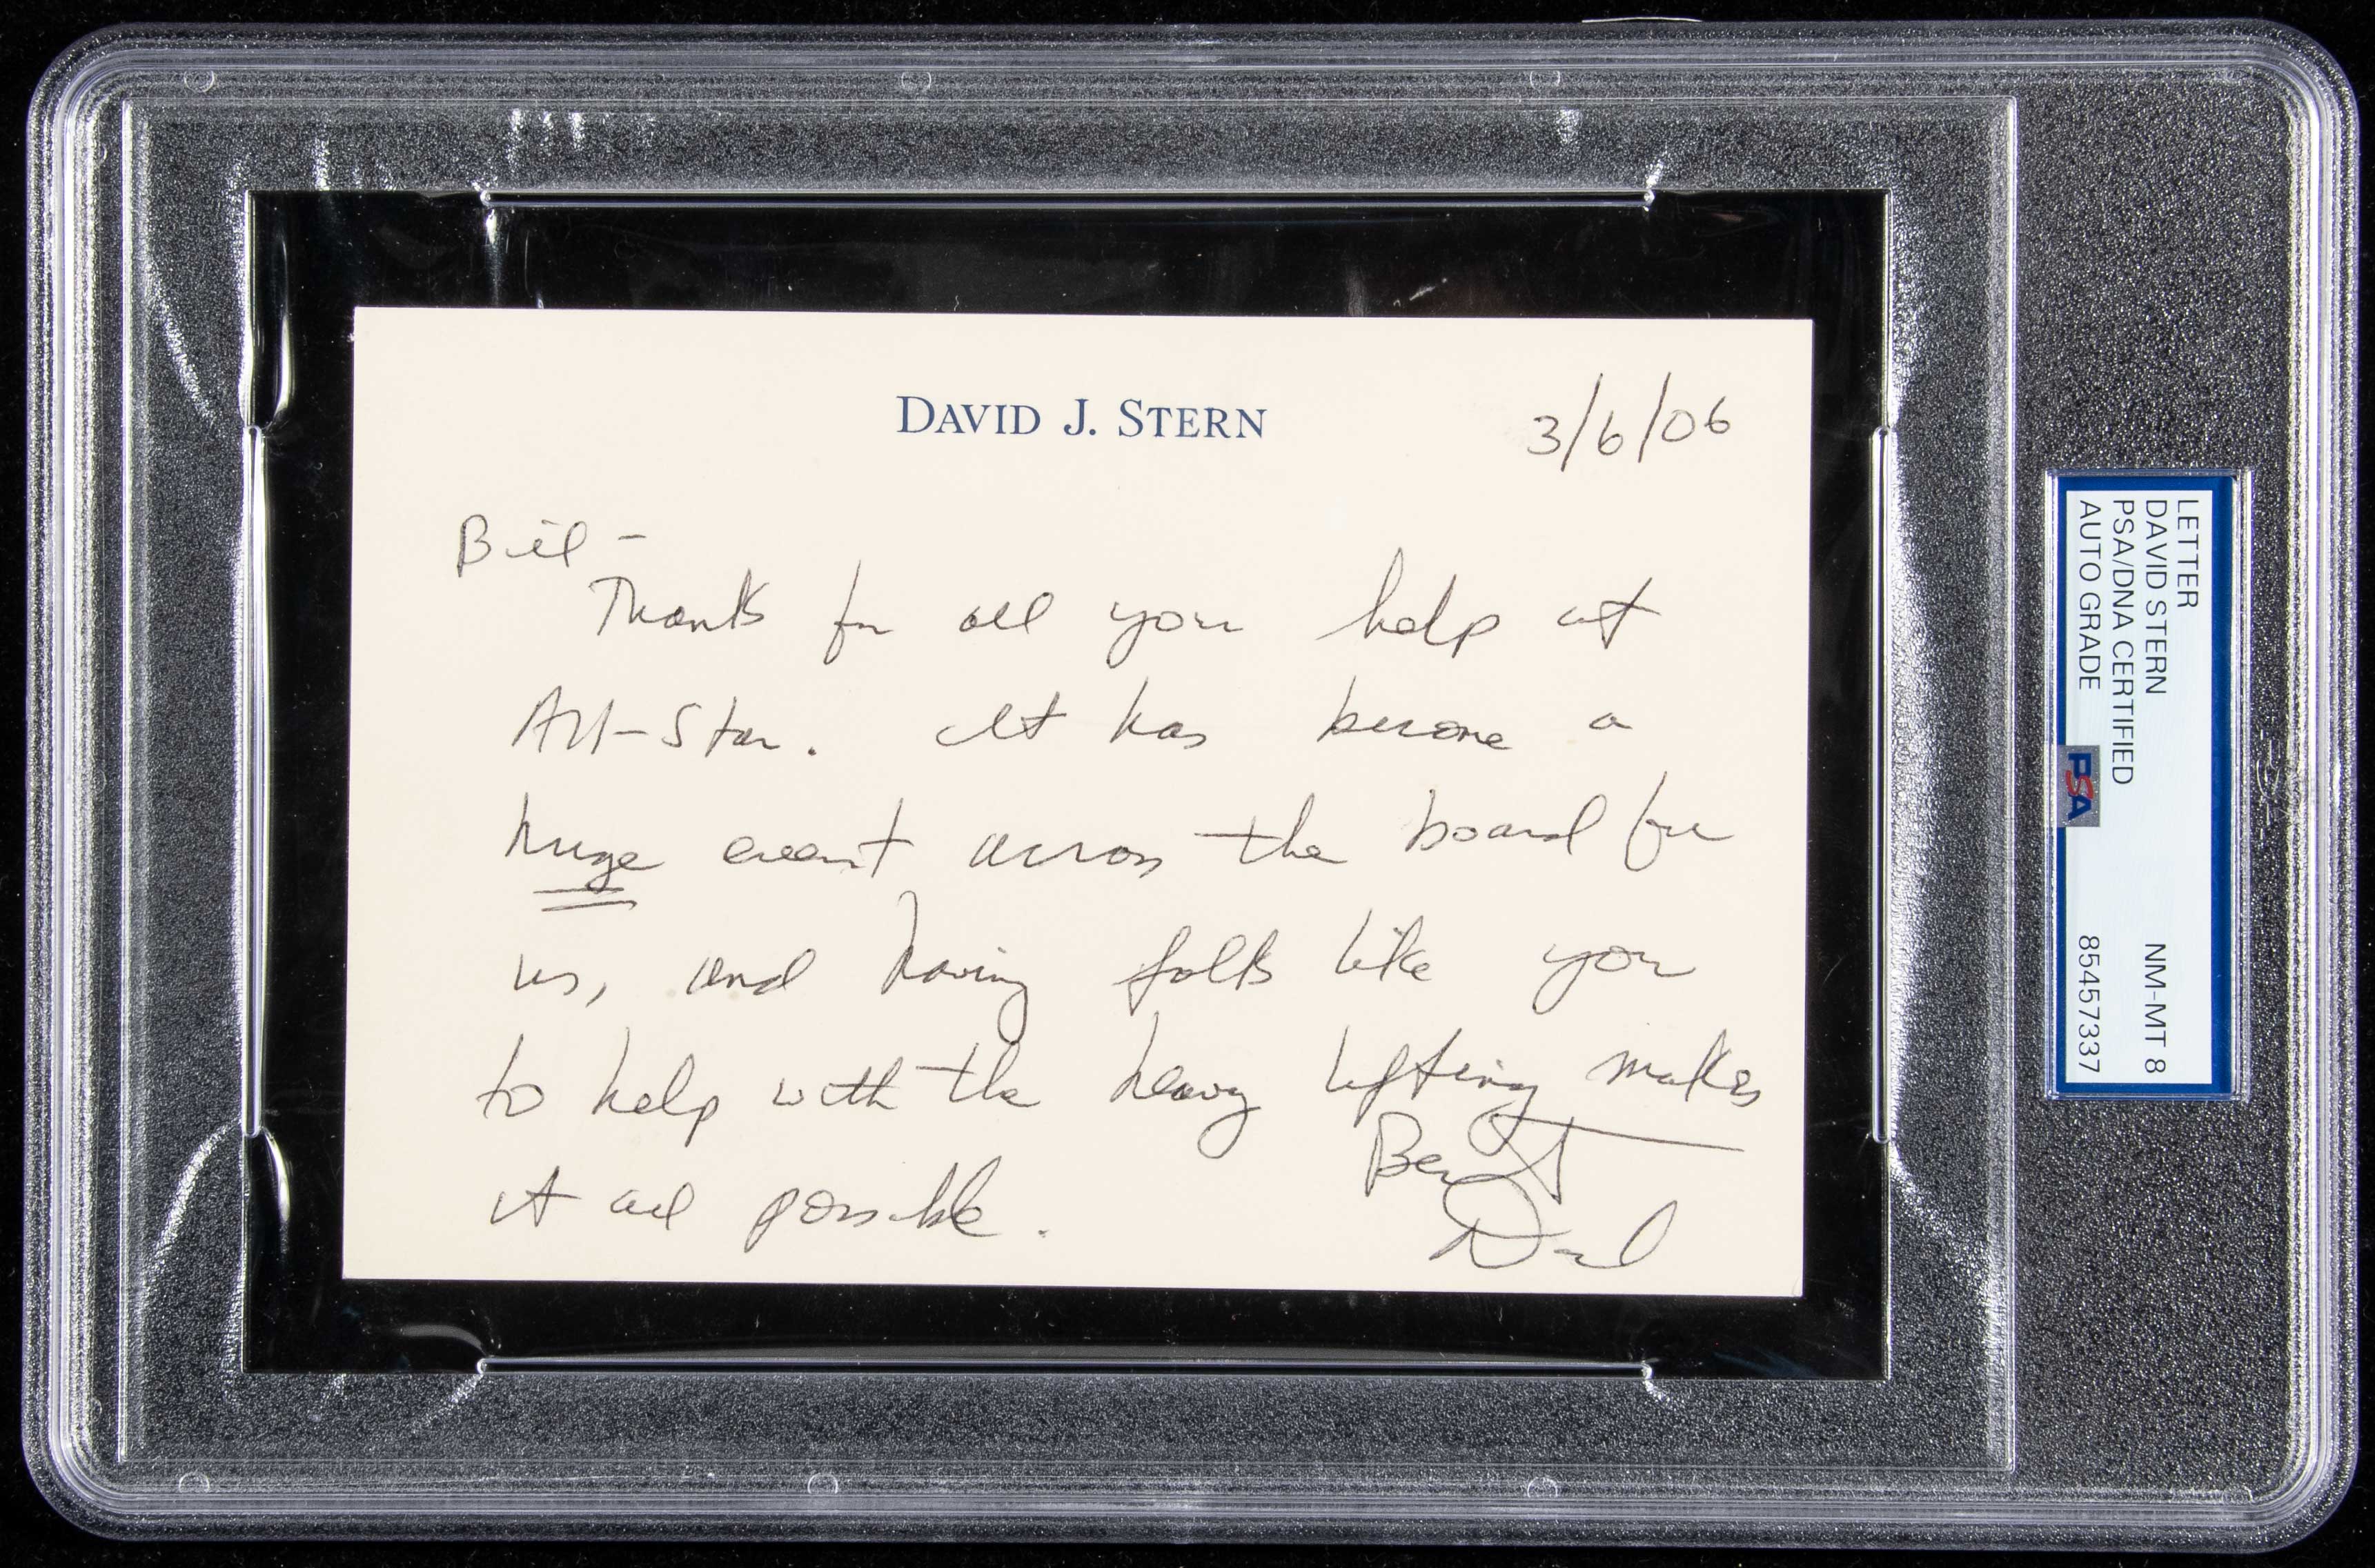 DAVID J. STERN
3/6/06
Bill -
Thanks for all your help at
All-Star. It has become a
huge event across the board for
us, and having folks like you
to help with the heavy lifting makes
it all possible.
Best
David
LETTER
DAVID STERN NM-MT 8
PSA/DNA CERTIFIED
AUTO GRADE 85457337
PSA